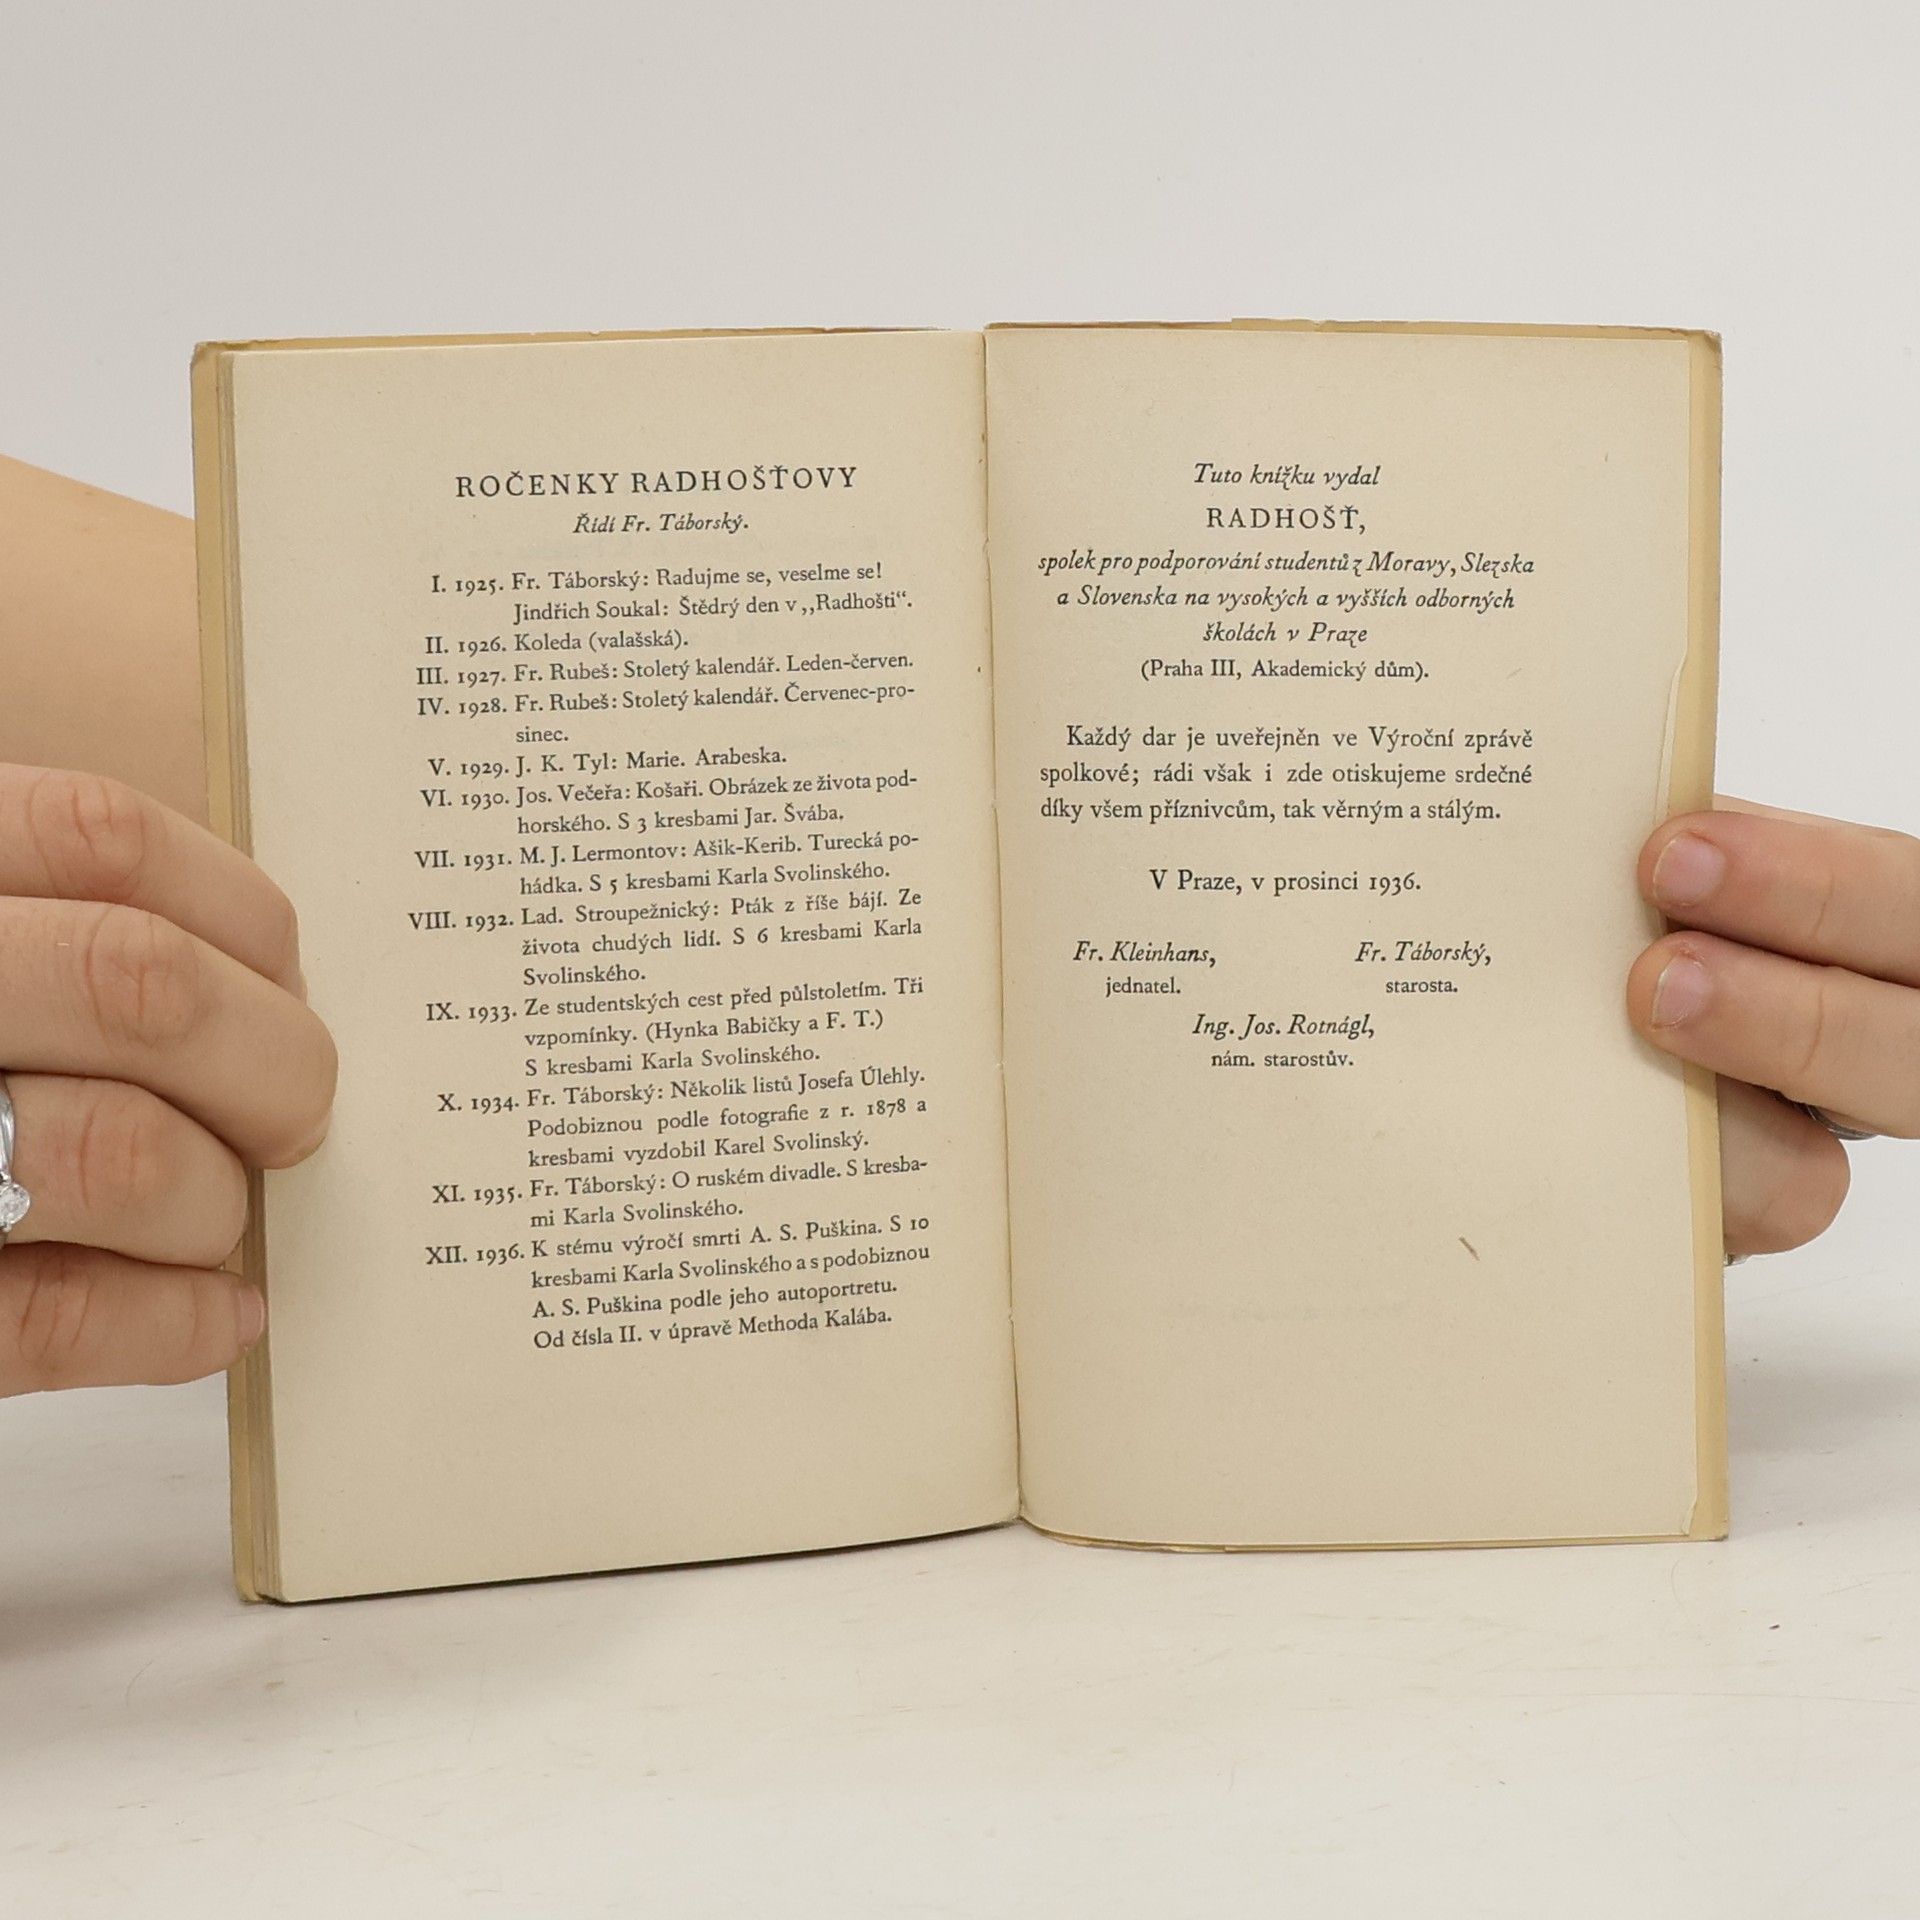 ROČENKY RADHOŠŤOVY
Řídí Fr. Táborský.
I. 1925. Fr. Táborský: Radujme se, veselme se!
Jindřich Soukal: Štědrý den v ,,Radhošti“.
II. 1926. Koleda (valašská).
III. 1927. Fr. Rubeš: Stoletý kalendář. Leden-červen.
IV. 1928. Fr. Rubeš: Stoletý kalendář. Červenec-pro-
sinec.
V. 1929. J. K. Tyl: Marie. Arabeska.
VI. 1930. Jos. Večeřa: Košaři. Obrázek ze života pod-
horského. S 3 kresbami Jar. Švába.
VII. 1931. M. J. Lermontov: Ašik-Kerib. Turecká po-
hádka. S 5 kresbami Karla Svolinského.
VIII. 1932. Lad. Stroupežnický: Pták z říše bájí. Ze
života chudých lidí. S 6 kresbami Karla
Svolinského.
IX. 1933. Ze studentských cest před půlstoletím. Tři
vzpomínky. (Hynka Babičky a F. T.)
S kresbami Karla Svolinského.
X. 1934. Fr. Táborský: Několik listů Josefa Úlehly.
Podobiznou podle fotografie z r. 1878 a
kresbami vyzdobil Karel Svolinský.
XI. 1935. Fr. Táborský: O ruském divadle. S kresba-
mi Karla Svolinského.
XII. 1936. K stému výročí smrti A. S. Puškina. S 10
kresbami Karla Svolinského a s podobiznou
A. S. Puškina podle jeho autoportretu.
Od čísla II. v úpravě Methoda Kalába.
Tuto knížku vydal
RADHOŠŤ,
spolek pro podporování studentů z Moravy, Slezska
a Slovenska na vysokých a vyšších odborných
školách v Praze
(Praha III, Akademický dům).
Každý dar je uveřejněn ve Výroční zprávě
spolkové; rádi však i zde otiskujeme srdečné
díky všem příznivcům, tak věrným a stálým.
V Praze, v prosinci 1936.
Fr. Kleinhans, Fr. Táborský,
jednatel. starosta.
Ing. Jos. Rotnágl,
nám. starostův.